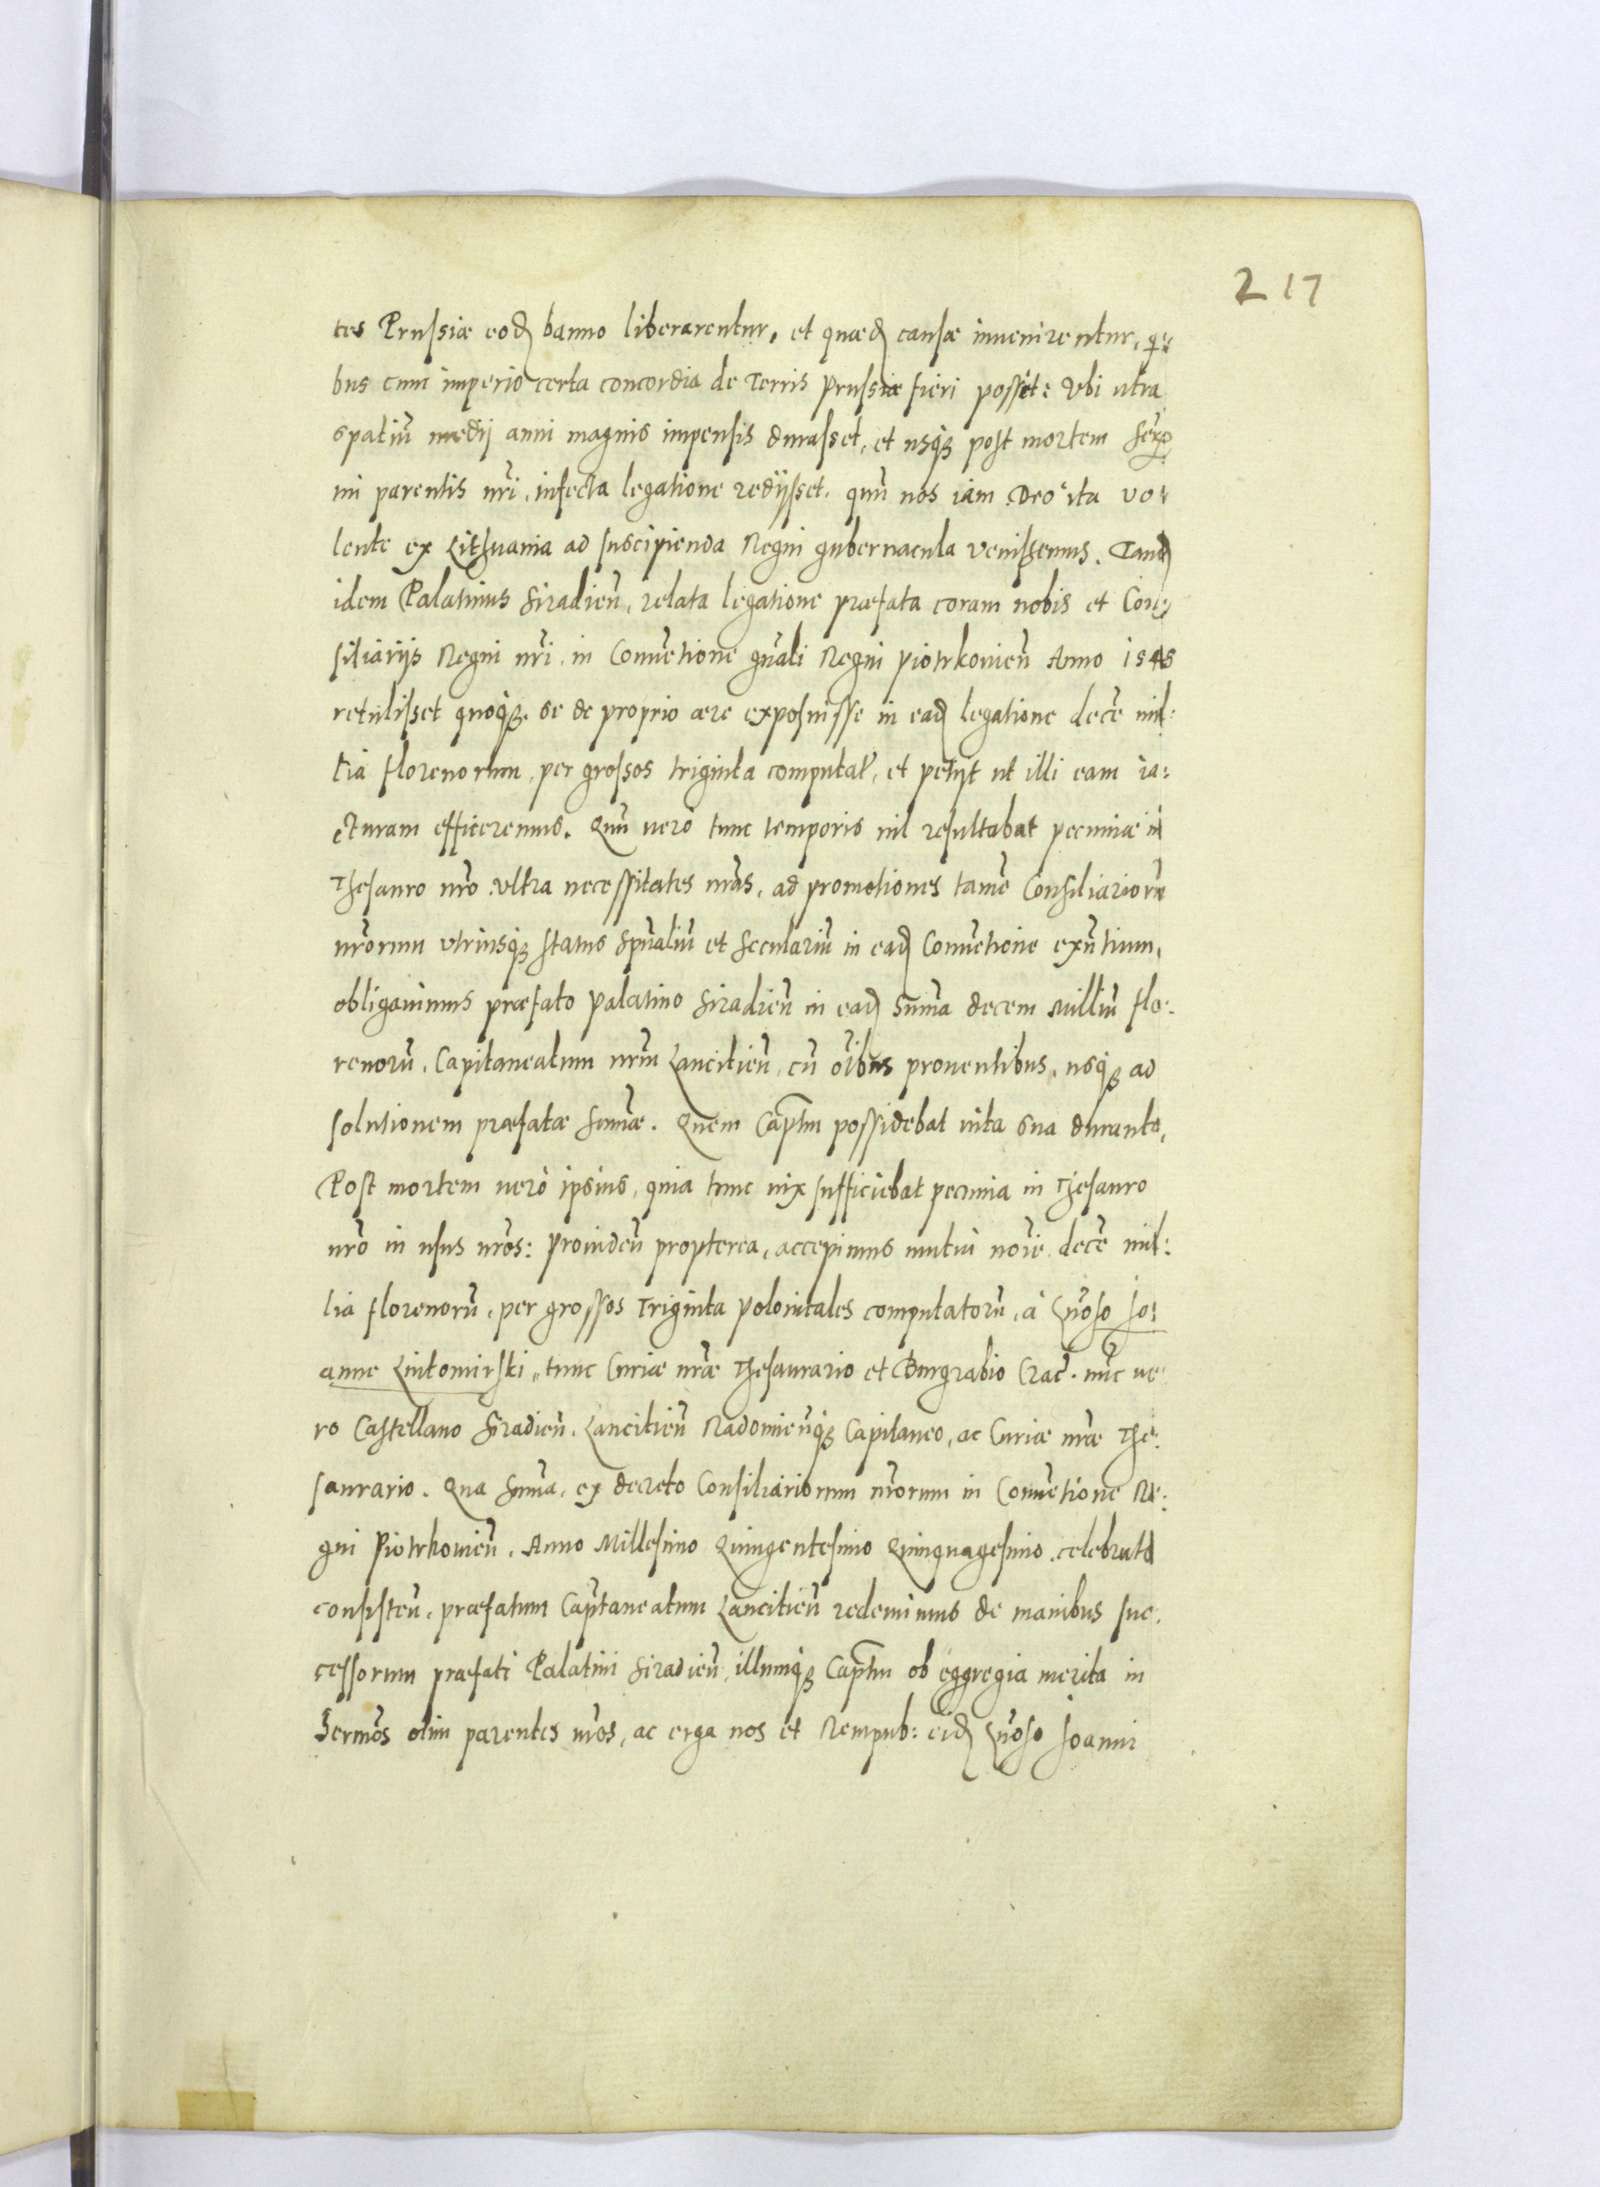 217
tes Prussiæ eod banno liberarentur, et quæd causæ invenirentur, qi
bus cum imperio certa concordia de Terris Prussiæ fieri posset: Ubi utra
spatiũ medij anni magnis impensis durasset, et usq3 post mortem
mi parentis nrĩ, infecta legatione redijsset. quũ nos iam Deo ita vo
lente ex Lithuania ad suscipienda Regni gubernacula venissemus. Tand
idem Palatinus Siradieñ, relata legatione præfata coram nobis et Con
siliarijs Regni nrĩ, in Convẽtione gñali Regni Piotrkovieñ Anno 1548
retulisset quoq3, se de proprio aere exposuisse in ead legatione decẽ mil:
lia florenorum, per grossos triginta computat, et petijt ut illi eam ia:
cturam efficeremus. Quũ vero tunc temporis nil resultabat pecuniæ in
Thesauro nrõ ultra necessitates nrãs, ad promotiones tamẽ Consiliariorũ
nrõrum utriusq3 status spũaliũ et seculariũ in ead Convẽtione exñtium,
obligavimus præfato Palatino Siradieñ in ead summa decem Milliũ flo:
renorũ, Capitaneatum nrũm Lancicieñ, cũ oĩbus proventibus, usq3 ad
solutionem præfatæ summæ. Quem Captm possidebat vita sua durante,
Post mortem verò ipsius, quia tunc vix sufficiebat pecunia in Thesauro
nrõ in usus nrõs: provideñ propterea, accepimus mutui noĩe decẽ mil:
lia florenorũ, per grossos Triginta Polonicales computatorũ, à Gñoso Jo:
anne Lutomirski, tunc Curiæ nræ Thesaurario et Burgrabio Crac. nũc ve
ro Castellano Siradieñ, Lancicieñ Radomieñq3 Capitaneo, ac Curiæ nræ The:
saurario. Qua summa, ex decreto Consiliariorum nrõrum in Convẽtione Re:
gni Piotrkovieñ, Anno Millesimo Quingentesimo Quinquagesimo, celebrata
consisteñ, præfatum Captaneatum Lancicieñ redemimus de manibus suc:
cessorum præfati Palatini Siradieñ, illumq3 Captm ob eggregia merita in
Sermõs olim parentes nrõs, ac erga nos et Rempub: eid Gñoso Joanni